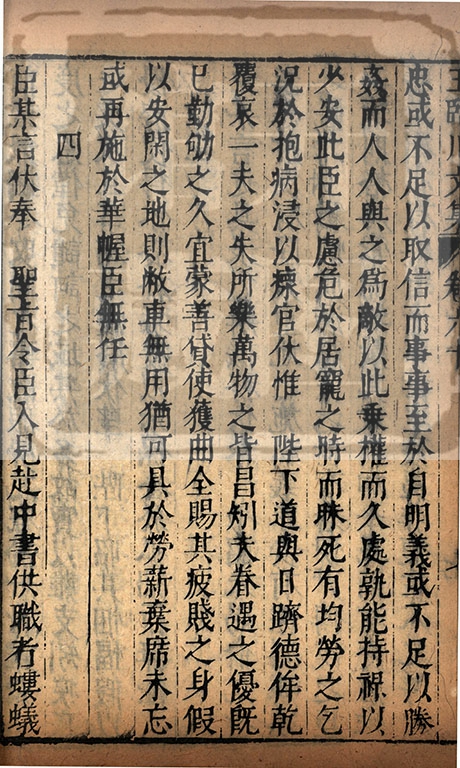 王臨川文集 卷六十
忠或不足以取信而事事至於自明義或不足以勝
姦而人人與之爲敵以此乗權而久處孰能持祿以
少安此臣之慮危於居寵之時而昧死有均勞之乞
況於抱病浸以瘝官伏惟 陛下道與日躋德侔乾
覆哀一夫之失所樂萬物之皆昌矧夫眷遇之優旣
已勤劬之久宜蒙善貸使獲曲全賜其疲賤之身假
以安閑之地則敝車無用猶可具於勞薪棄席未忘
或再施於華幄臣無任
四
臣某言伏奉 聖旨令臣入見赴中書供職者螻蟻